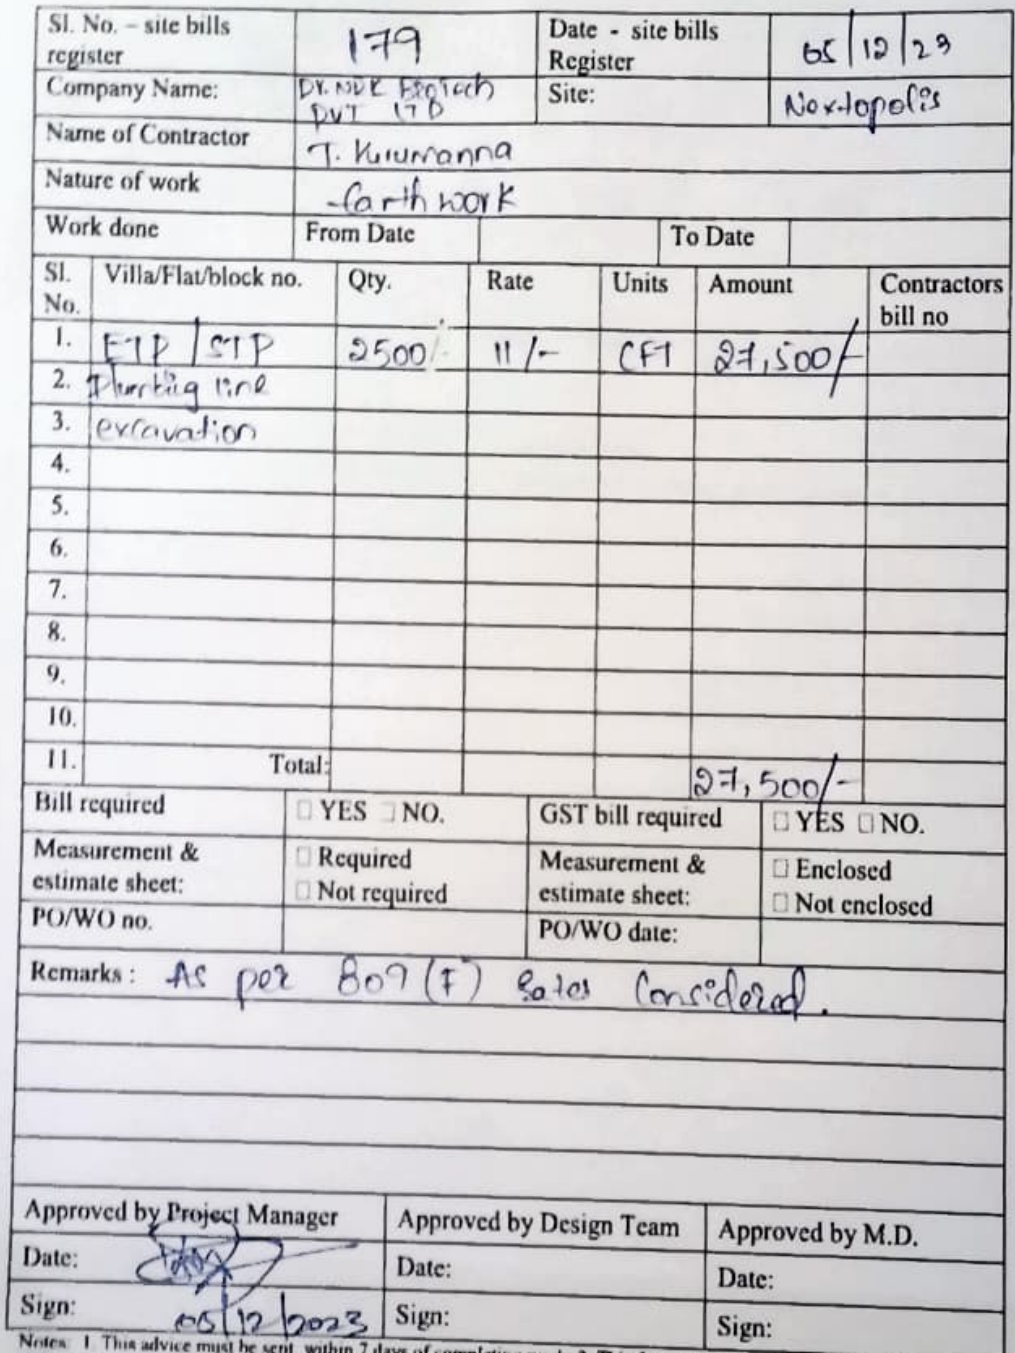 Sl. No. – site bills register 179 Date - site bills Register 05/12/23
Company Name: Dr. NDR BioTech PVT LTD Site: Nextopolis
Name of Contractor T. Kurumanna
Nature of work Earth work
Work done From Date To Date
Sl. No. Villa/Flat/block no. Qty. Rate Units Amount Contractors bill no
1. ETP / STP 2500/- 11/- CFT 27,500/-
2. Plumbing line
3. excavation
4.
5.
6.
7.
8.
9.
10.
11. Total: 27,500/-
Bill required □ YES □ NO. GST bill required □ YES □ NO.
Measurement & estimate sheet: □ Required □ Not required Measurement & estimate sheet: □ Enclosed □ Not enclosed
PO/WO no. PO/WO date:
Remarks : As per 809 (F) Rates Considered.
Approved by Project Manager Approved by Design Team Approved by M.D.
Date: Date: Date:
Sign: 05/12/2023 Sign: Sign:
Notes: 1. This advice must be sent within 7 days of